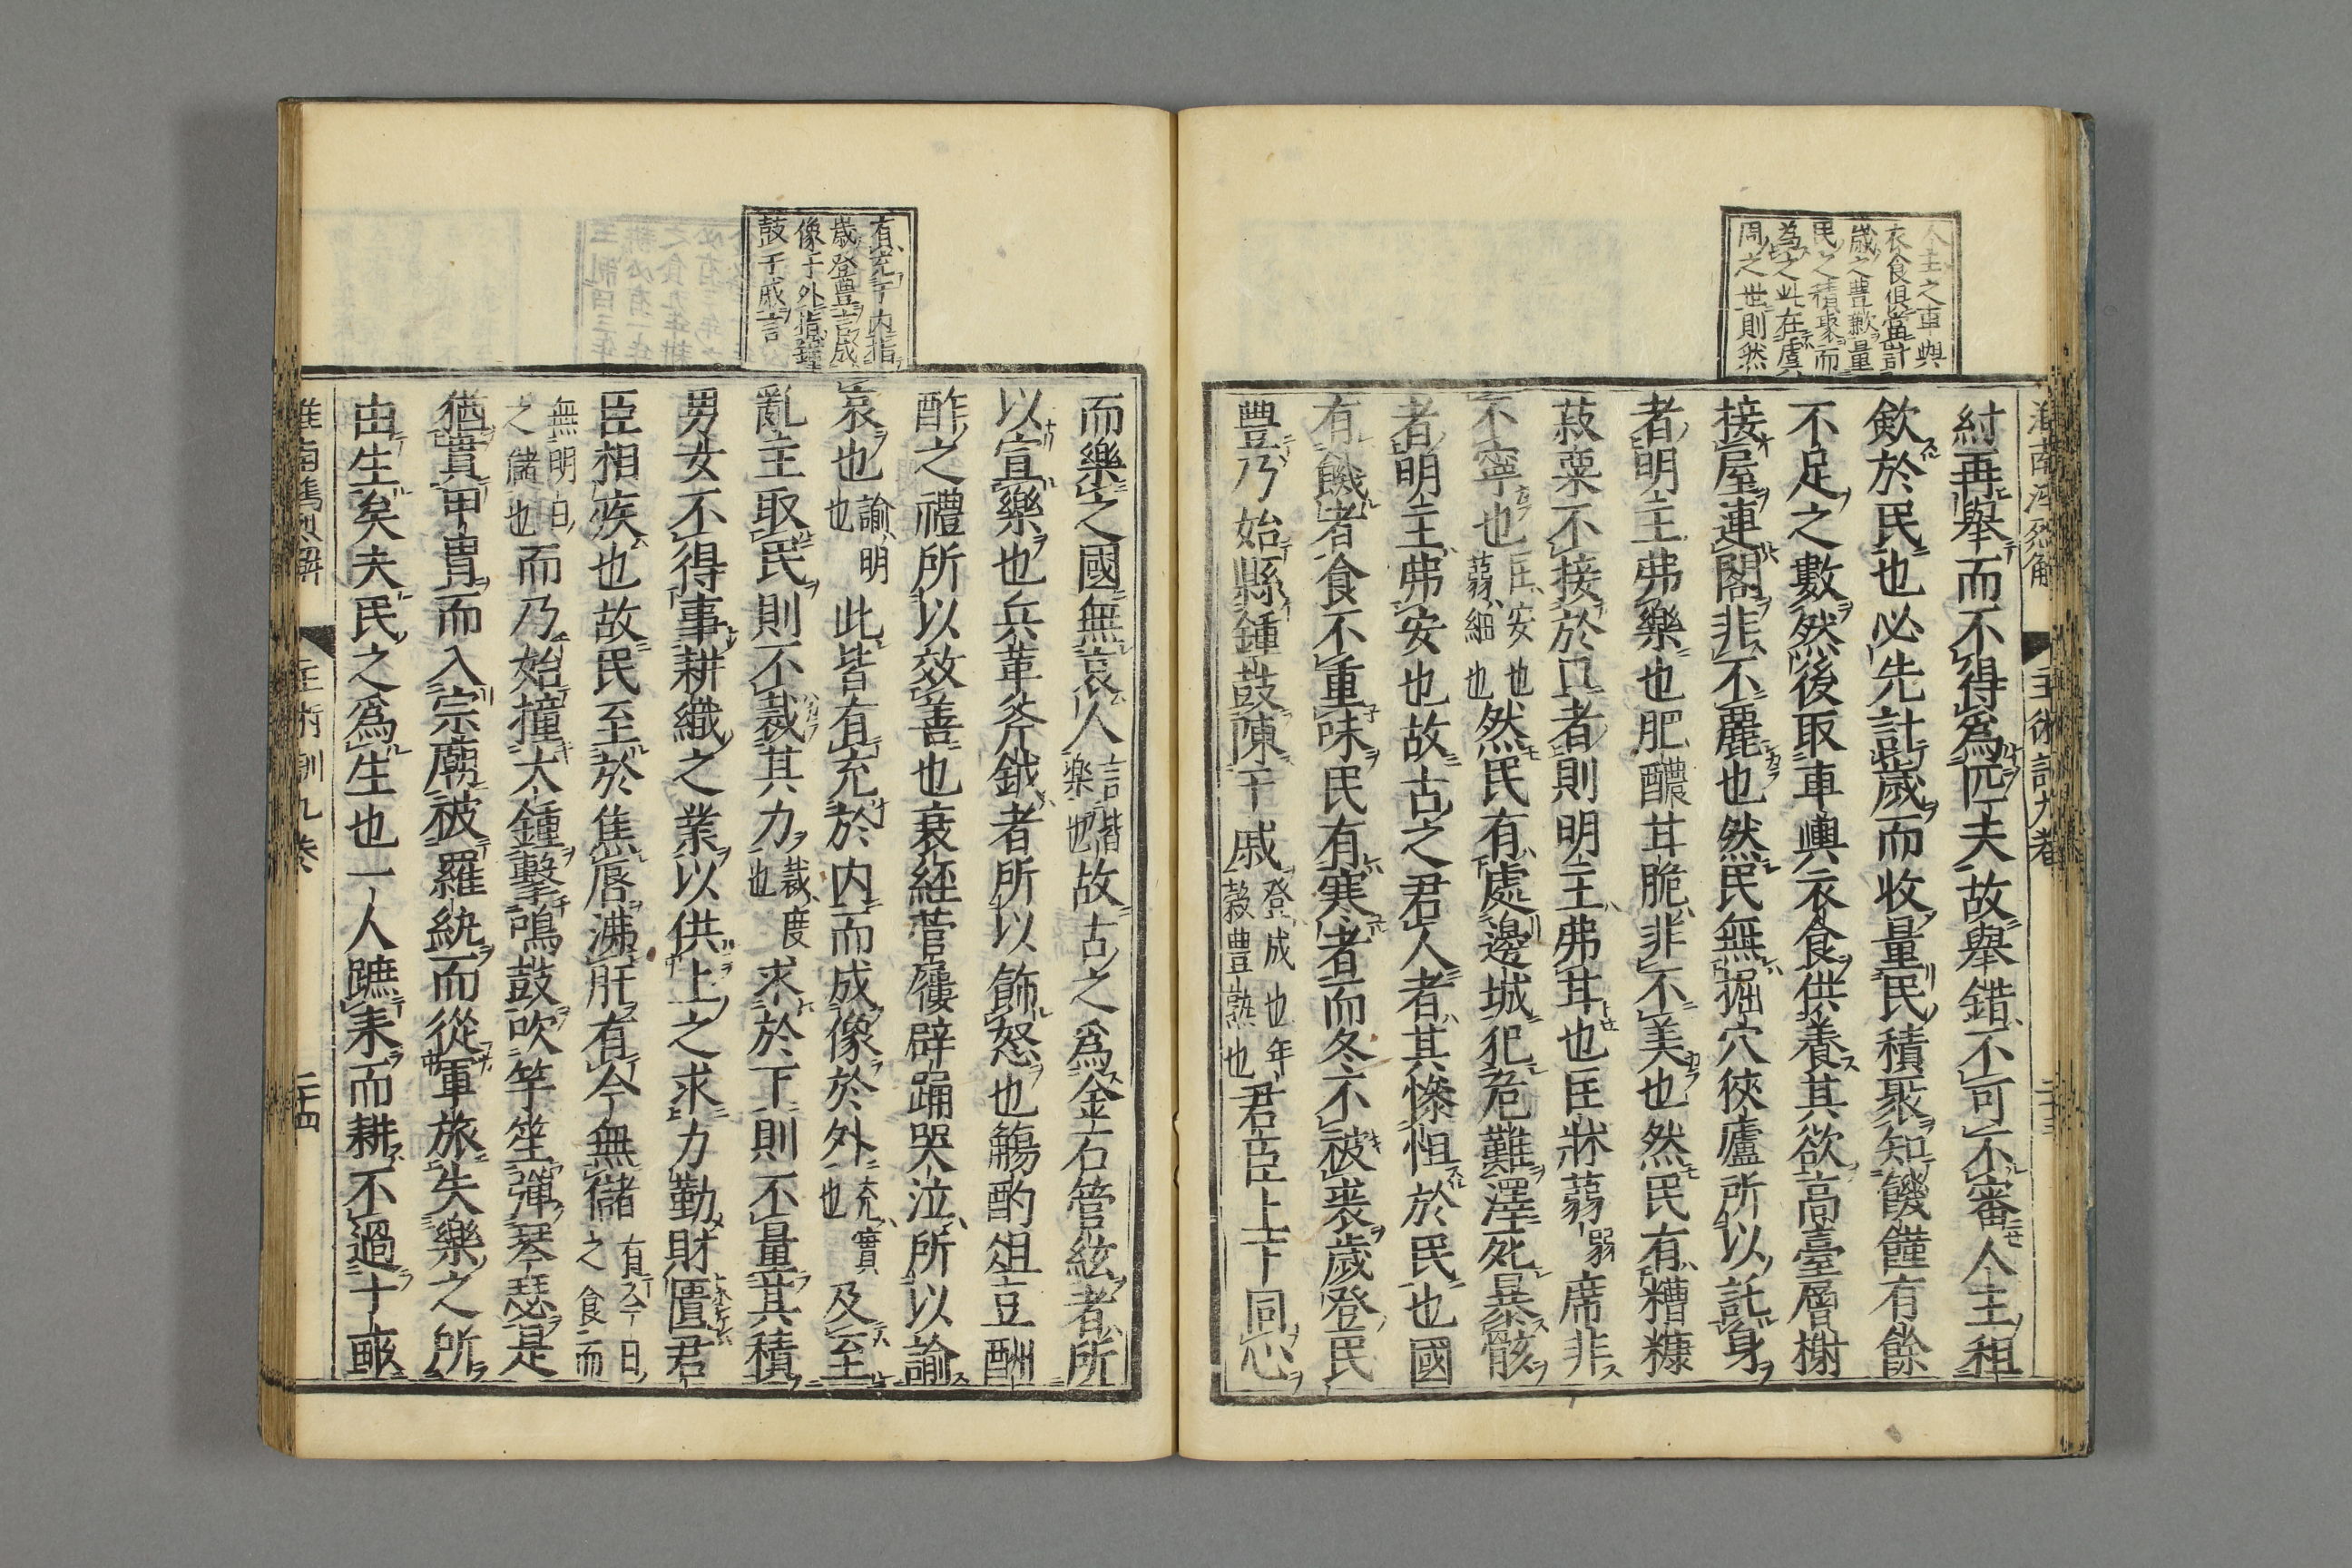 人主之車與
衣食俱當計
歲之豐歉量
民之積聚而
為之此在虞
周之世則然
紂再舉而不得為匹夫故舉錯不可不審人主租
歛於民也必先計歲而收量民積聚知饑饉有餘
不足之數然後取車輿衣食供養其欲高臺層榭
接屋連閣非不麗也然民無掘穴狹廬所以託身
者明主弗樂也肥醲甘脆非不美也然民有糟糠
菽粟不接於口者則明主弗甘也匡牀蒻弱席非
不寧也匡安也蒻細也然民有處邊城犯危難澤死暴骸
者明主弗安也故古之君人者其慘怛於民也國
有饑者食不重味民有寒者而冬不被裘歲登民
豐乃始縣鍾鼓陳干戚登成也年穀豐熟也君臣上下同心
主術訓九卷
有充于内指
歲登豐言成
像于外指鐘
鼓于戚言
而樂之國無哀人言皆樂也故古之為金石管絃者所
以宣樂也兵革斧鉞者所以飾怒也觴酌俎豆酬
酢之禮所以效善也衰絰菅屨辟踊哭泣所以諭
哀也諭明也此皆有充於内而成像於外充實也及至
亂主取民則不裁其力裁度也求於下則不量其積
男女不得事耕織之業以供上之求力勤財匱君
臣相疾也故民至於焦唇沸肝有今無儲有今日之食而
無明日之儲也而乃始撞大鍾擊鳴鼓吹竽笙彈琴瑟是
猶貫甲冑而入宗廟被羅紈而從軍旅失樂之所
由生矣夫民之為生也一人蹠耒而耕不過十畝
淮南鴻烈解 主術訓九卷 二十四